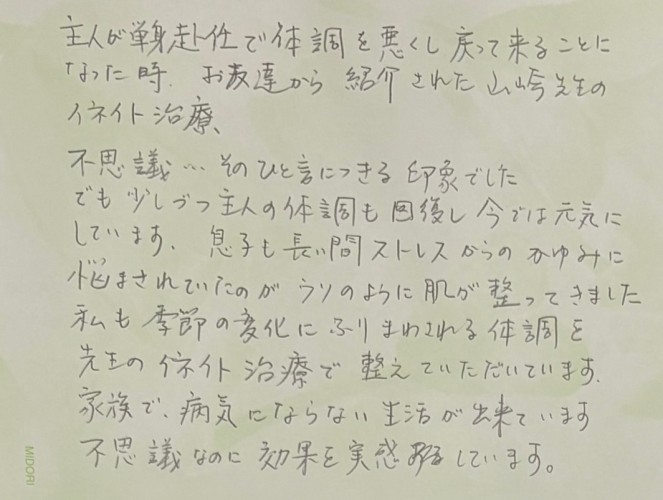 主人が単身赴任で体調を悪くし戻って来ることに
なった時、お友達から紹介された山崎先生の
イネイト治療、
不思議…そのひと言につきる印象でした
でも少しづつ主人の体調も回復し今では元気に
しています、息子も長い間ストレスからのかゆみに
悩まされていたのがウソのように肌が整ってきました
私も季節の変化にふりまわされる体調を
先生のイネイト治療で整えていただいています、
家族で、病気にならない生活が出来ています
不思議なのに効果を実感しています。
MIDORI